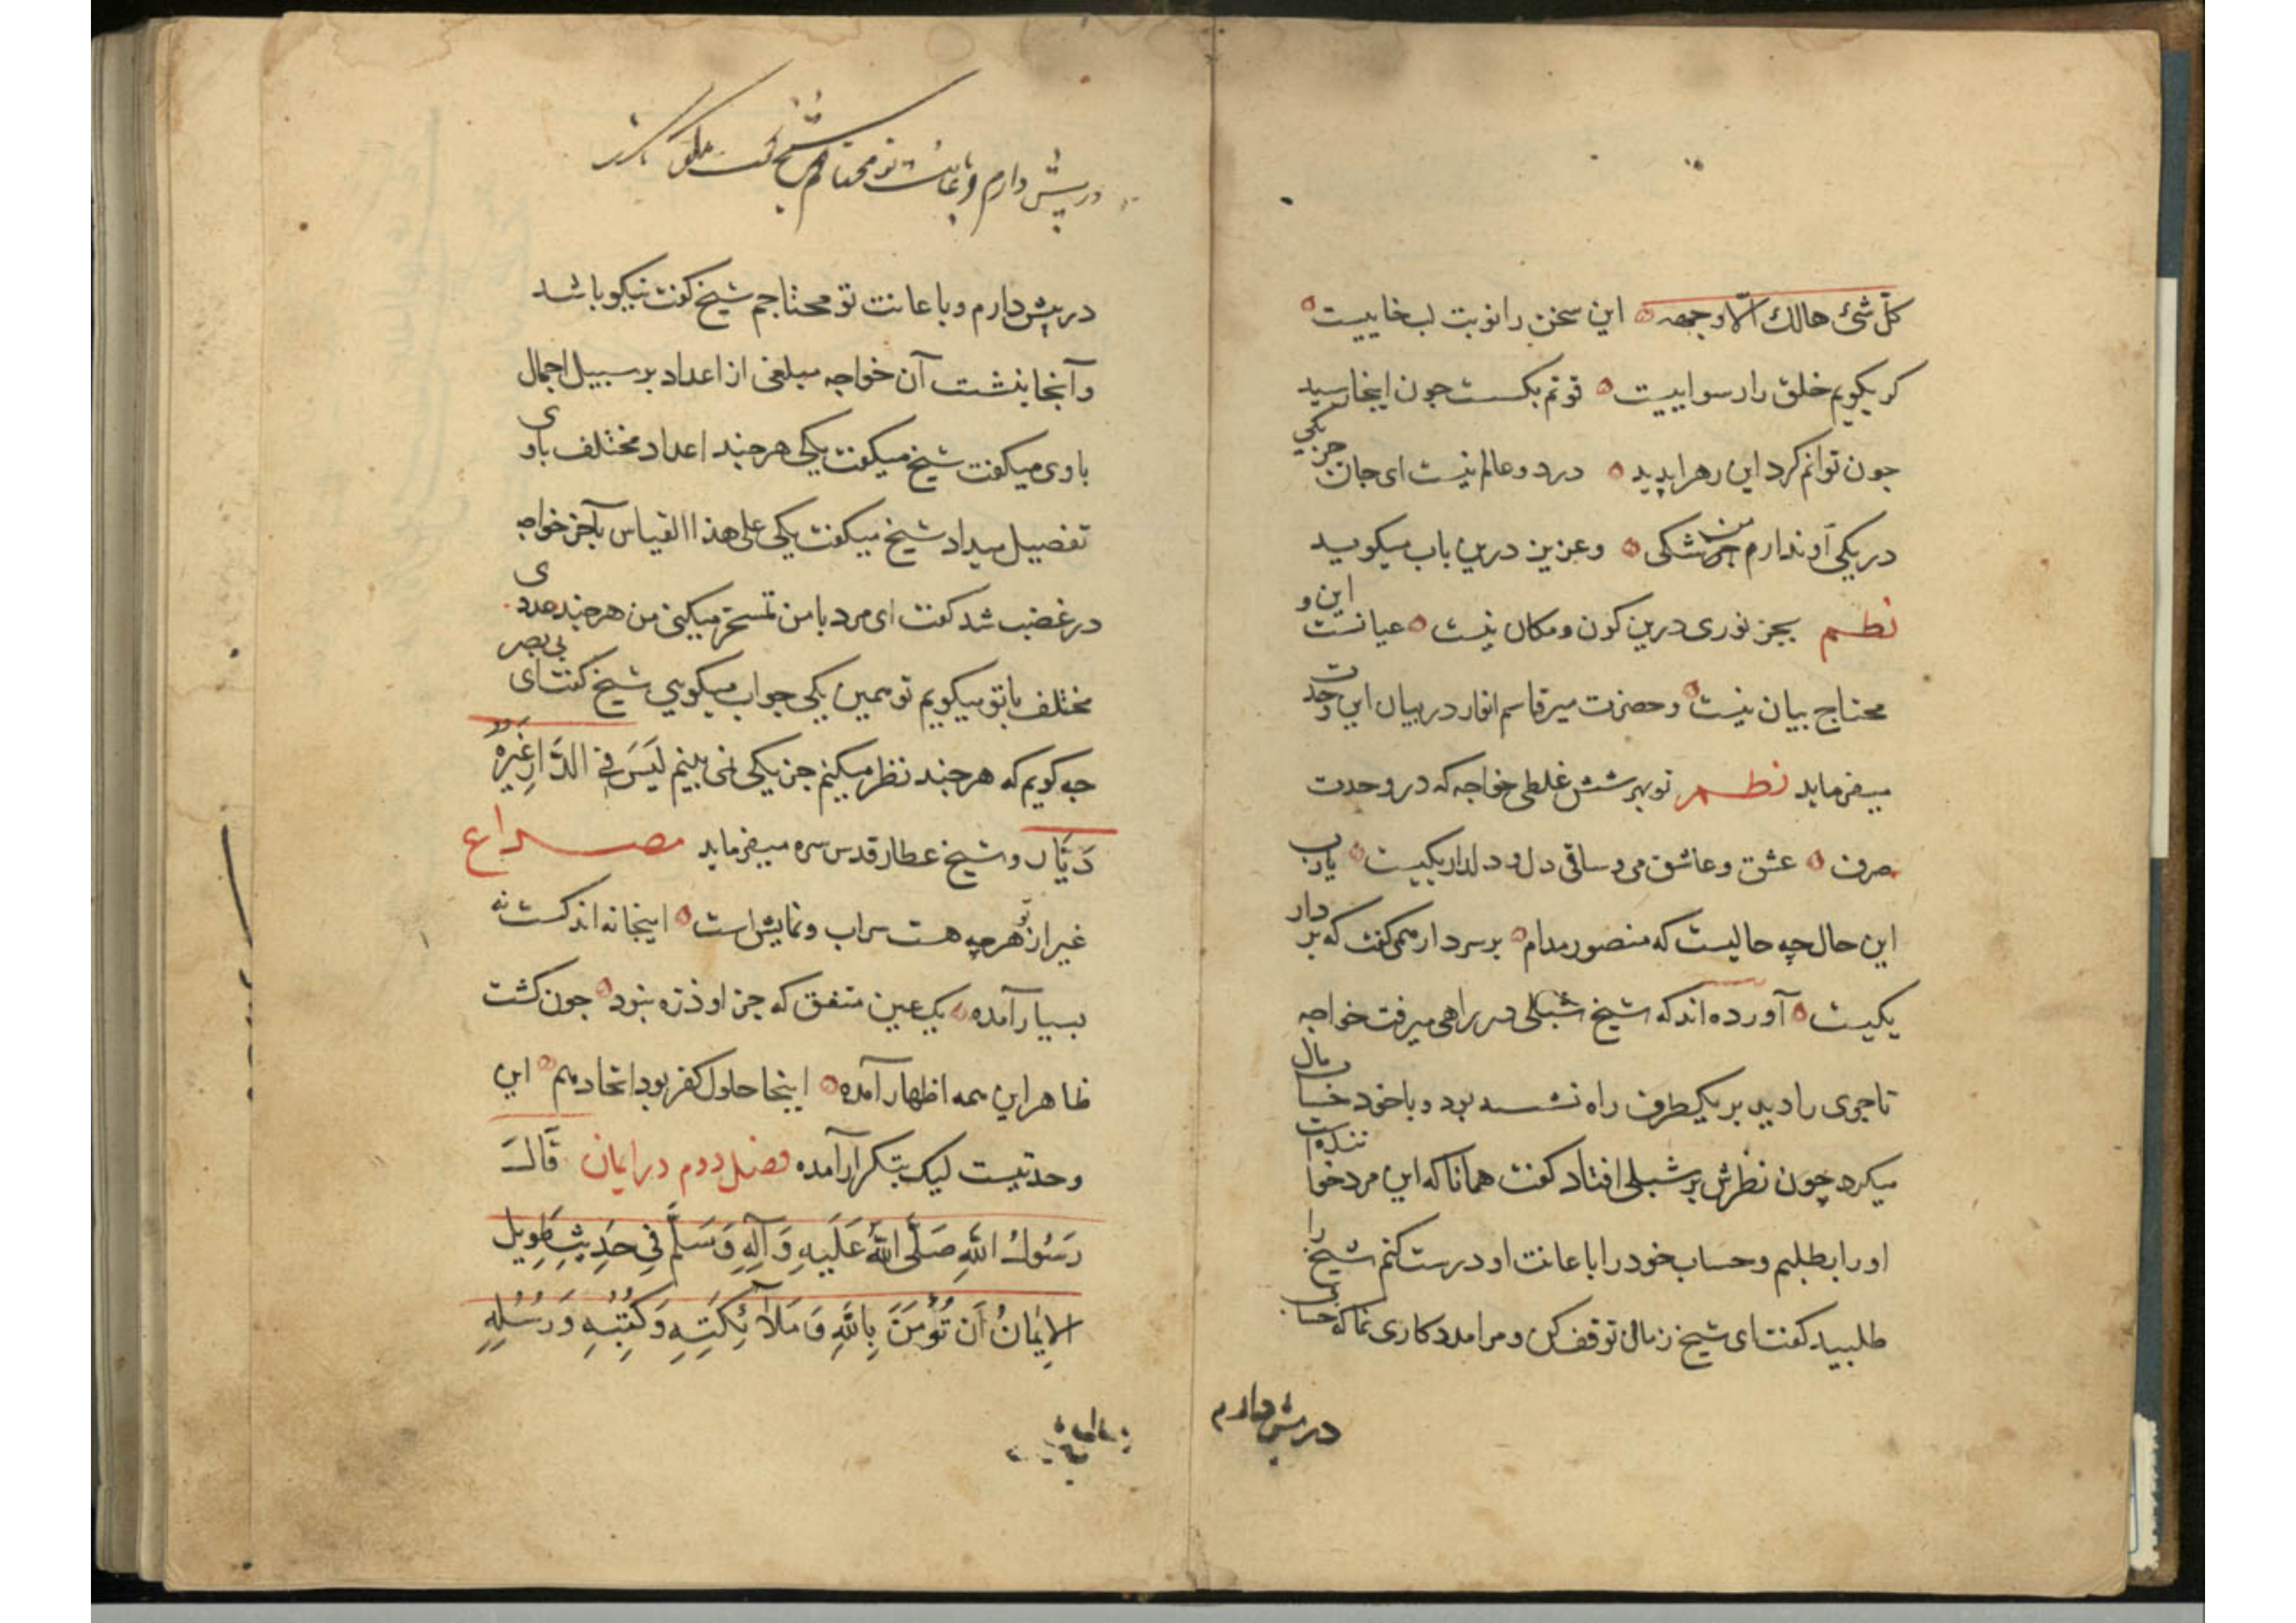 كلّ شئ هالك الّا وجهه این سخن را نوبت لب خاییست
کر بکویم خلق را رسواییست قوتم بکسست جون اینجا رسید
جون توانم کرد این ره را پدید در دو عالم نیست ای جان جز یکی
در یکی او ندارم من شکی وعزیز درین باب میکوید
نظم بجز نوری درین کون و مکان نیست عیانست این و
محتاج بیان نیست وحضرت میر قاسم انوار در بیان این وحدت
میفرماید نظم تو بهر شش غلطی خواجه که در وحدت
صرف عشق وعاشق می وساقی دل و دلدار یکیست یا رب
این حال چه حالیست که منصور مدام بر سر دار همی کفت که بر دار
یکیست آورده اند که شیخ شبلی در راهی میرفت خواجه
تاجری را دید بر یکطرف راه نشسته بود و با خود حساب مال
میکرد چون نظرش بر شبلی افتاد کفت همانا که این مرد خواننده است
او را بطلبم وحساب خود را با عانت او درست کنم شیخ را
طلبید کفت ای شیخ زمانی توقف کن و مرا مدد کاری نما که حسابی
در پیش دارم
در پیش دارم و با عانت تو محتاجم شیخ کفت نیکو باشد
در پیش دارم و با عانت تو محتاجم شیخ کفت نیکو باشد
و آنجا بنشست آن خواجه مبلغی از اعداد بر سبیل اجمال
با وی میکفت شیخ میکفت یکی هر جند اعداد مختلف با وی
تفصیل میداد شیخ میکفت یکی علی هذا القیاس بآخر خواجه
در غضب شد کفت ای مرد با من تمسخر میکنی من هر جند عددی
مختلف با تو میکویم تو همین یکی جواب میکویی شیخ کفت ای بی بصر
جه کویم که هر جند نظر میکنم جز یکی نمی بینم لَيْسَ فِي الدَّارِ غَيْرُهُ
دَيَّار و شیخ عطار قدس سره میفرماید مصراع
غیر از تو هر چه هست سراب و نمایش است اینجا نه اندکست نه
بسیار آمده یک عین متفق که جز او ذره نبود جون کشت
ظاهر این همه اظهار آمده اینجا حلول کفر بود اتحاد هم این
وحدتیست لیک بتکرار آمده فصل دوم در ایمان قَالَ
رَسُولُ اللّٰهِ صَلَّى اللّٰهُ عَلَيهِ وَآلِهِ وَسَلَّم فِي حَدِيثٍ طَوِيل
الإِيمَانُ أَن تُؤْمِنَ بِاللّٰهِ وَمَلَآئِكَتِهِ وَكُتُبِهِ وَرُسُلِهِ